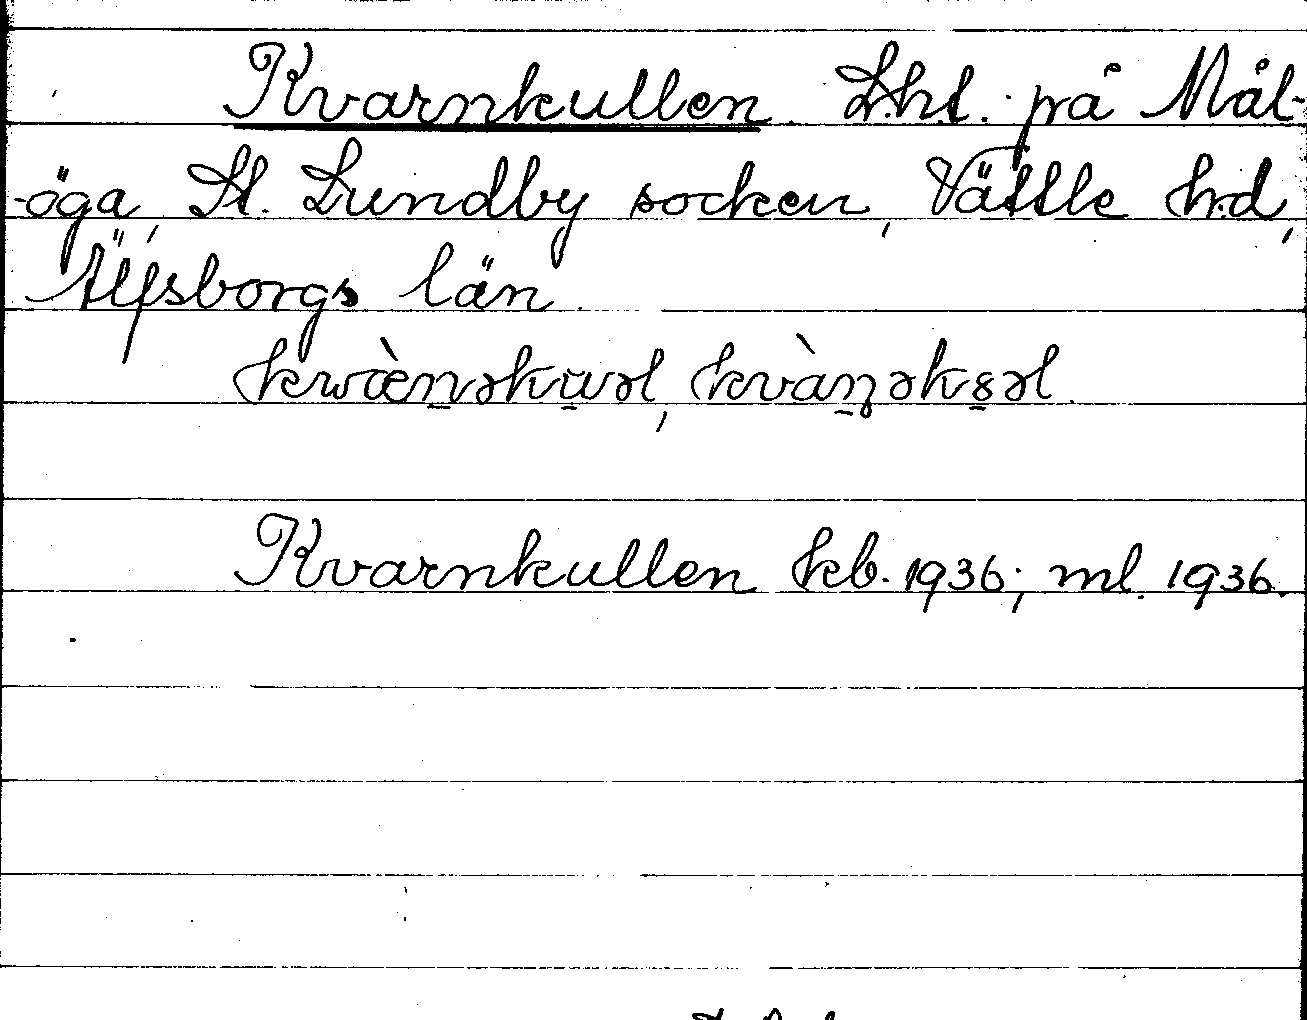 Kvarnkullen. Lht. på Mål-
öga, St. Lundby socken, Vättle hd,
Älfsborgs län.
Kvarnkullen kb. 1936; ml. 1936.